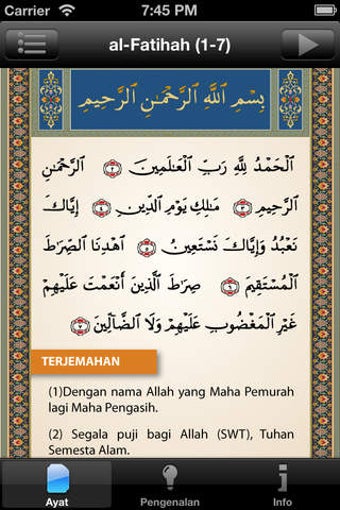 Carrier 7:45 PM
al-Fatihah (1-7)
بِسْمِ ٱللَّهِ ٱلرَّحْمَٰنِ ٱلرَّحِيمِ
ٱلْحَمْدُ لِلَّهِ رَبِّ ٱلْعَٰلَمِينَ ٢ ٱلرَّحْمَٰنِ
ٱلرَّحِيمِ ٣ مَٰلِكِ يَوْمِ ٱلدِّينِ ٤ إِيَّاكَ
نَعْبُدُ وَإِيَّاكَ نَسْتَعِينُ ٥ ٱهْدِنَا ٱلصِّرَٰطَ
ٱلْمُسْتَقِيمَ ٦ صِرَٰطَ ٱلَّذِينَ أَنْعَمْتَ عَلَيْهِمْ
غَيْرِ ٱلْمَغْضُوبِ عَلَيْهِمْ وَلَا ٱلضَّآلِّينَ ٧
TERJEMAHAN
(1)Dengan nama Allah yang Maha Pemurah
lagi Maha Pengasih.
(2) Segala puji bagi Allah (SWT), Tuhan
Semesta Alam.
Ayat Pengenalan Info